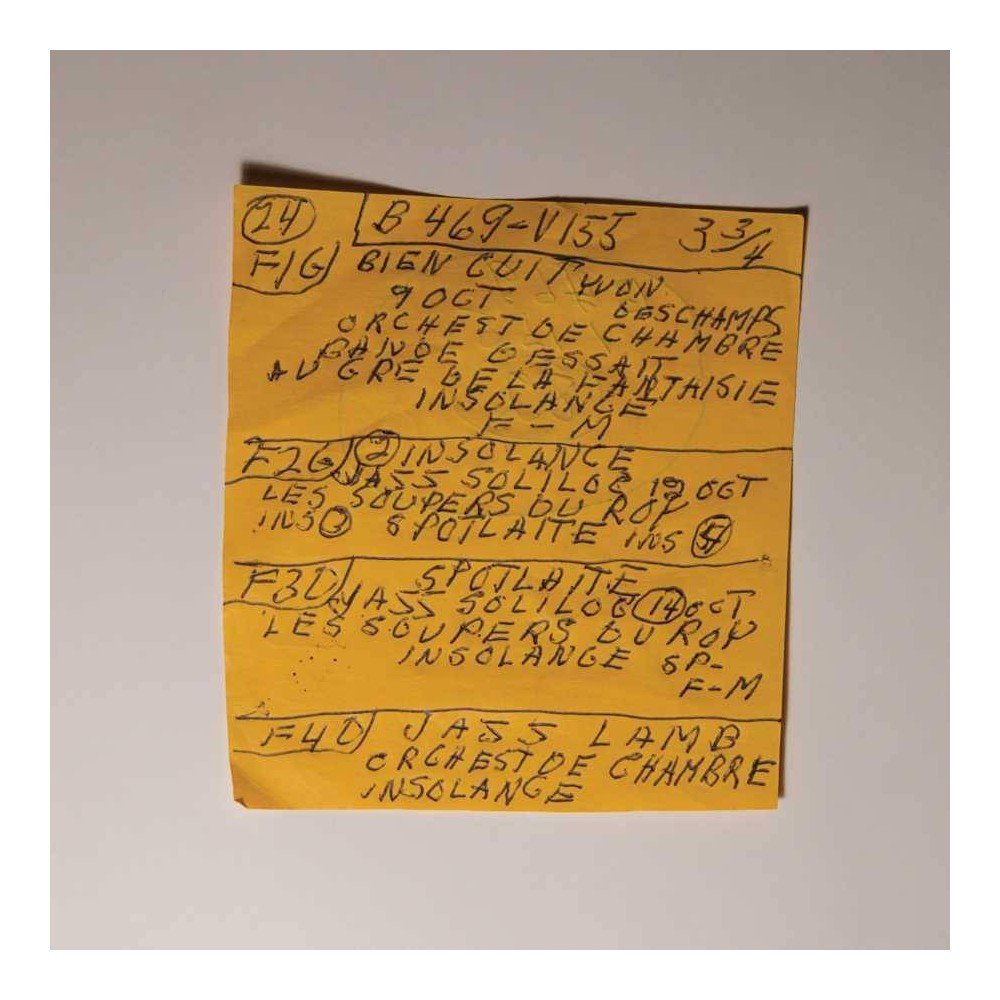 24 B 469-V155 3 3/4
F1G BIEN CUIT YVON
9 OCT DESCHAMPS
ORCHEST DE CHAMBRE
BANDE DESSAIT
AU GRE DE LA FANTAISIE
INSOLANCE
F-M
F2G 2 INSOLANCE
JASS SOLILOC 19 OCT
LES SOUPERS DU ROY
INS 3 SPOTLAITE INS
F3D SPOTLAITE
JASS SOLILOC 14 OCT
LES SOUPERS DU ROY
INSOLANGE SP-
F-M
F4D JASS LAMB
ORCHEST DE CHAMBRE
INSOLANGE